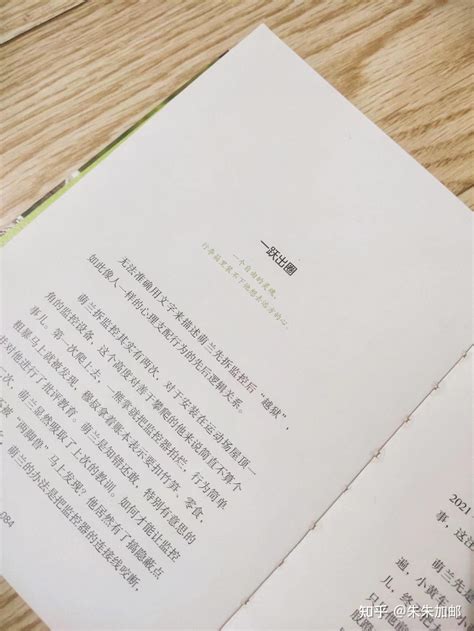 一跃出圈
一个自由的灵魂，
行李箱里装不下他想去远方的心。
无法准确用文字来描述萌兰先拆监控后“越狱”，
如此像人一样的心理支配行为的先后逻辑关系。
萌兰拆监控其实有两次，对于安装在运动场屋顶一
角的监控设备，这个高度对善于攀爬的他来说简直不算个
事儿。第一次爬上去，一熊掌就把监控器拍烂，行为简单
粗暴马上就被发现，穆叔拿着账本表示要扣竹笋、零食，
对他进行了批评教育。萌兰是知错还敢，特别有意思的
一次，萌兰显然吸取了上次的教训。如何才能让监控
不被“两脚兽”马上发现？他居然有了搞隐蔽点
，萌兰的办法是把监控器的连接线咬断，
084
2021
事，这注
萌兰先是
遍，小黄车
儿，终
只
知乎 @朱朱加邮